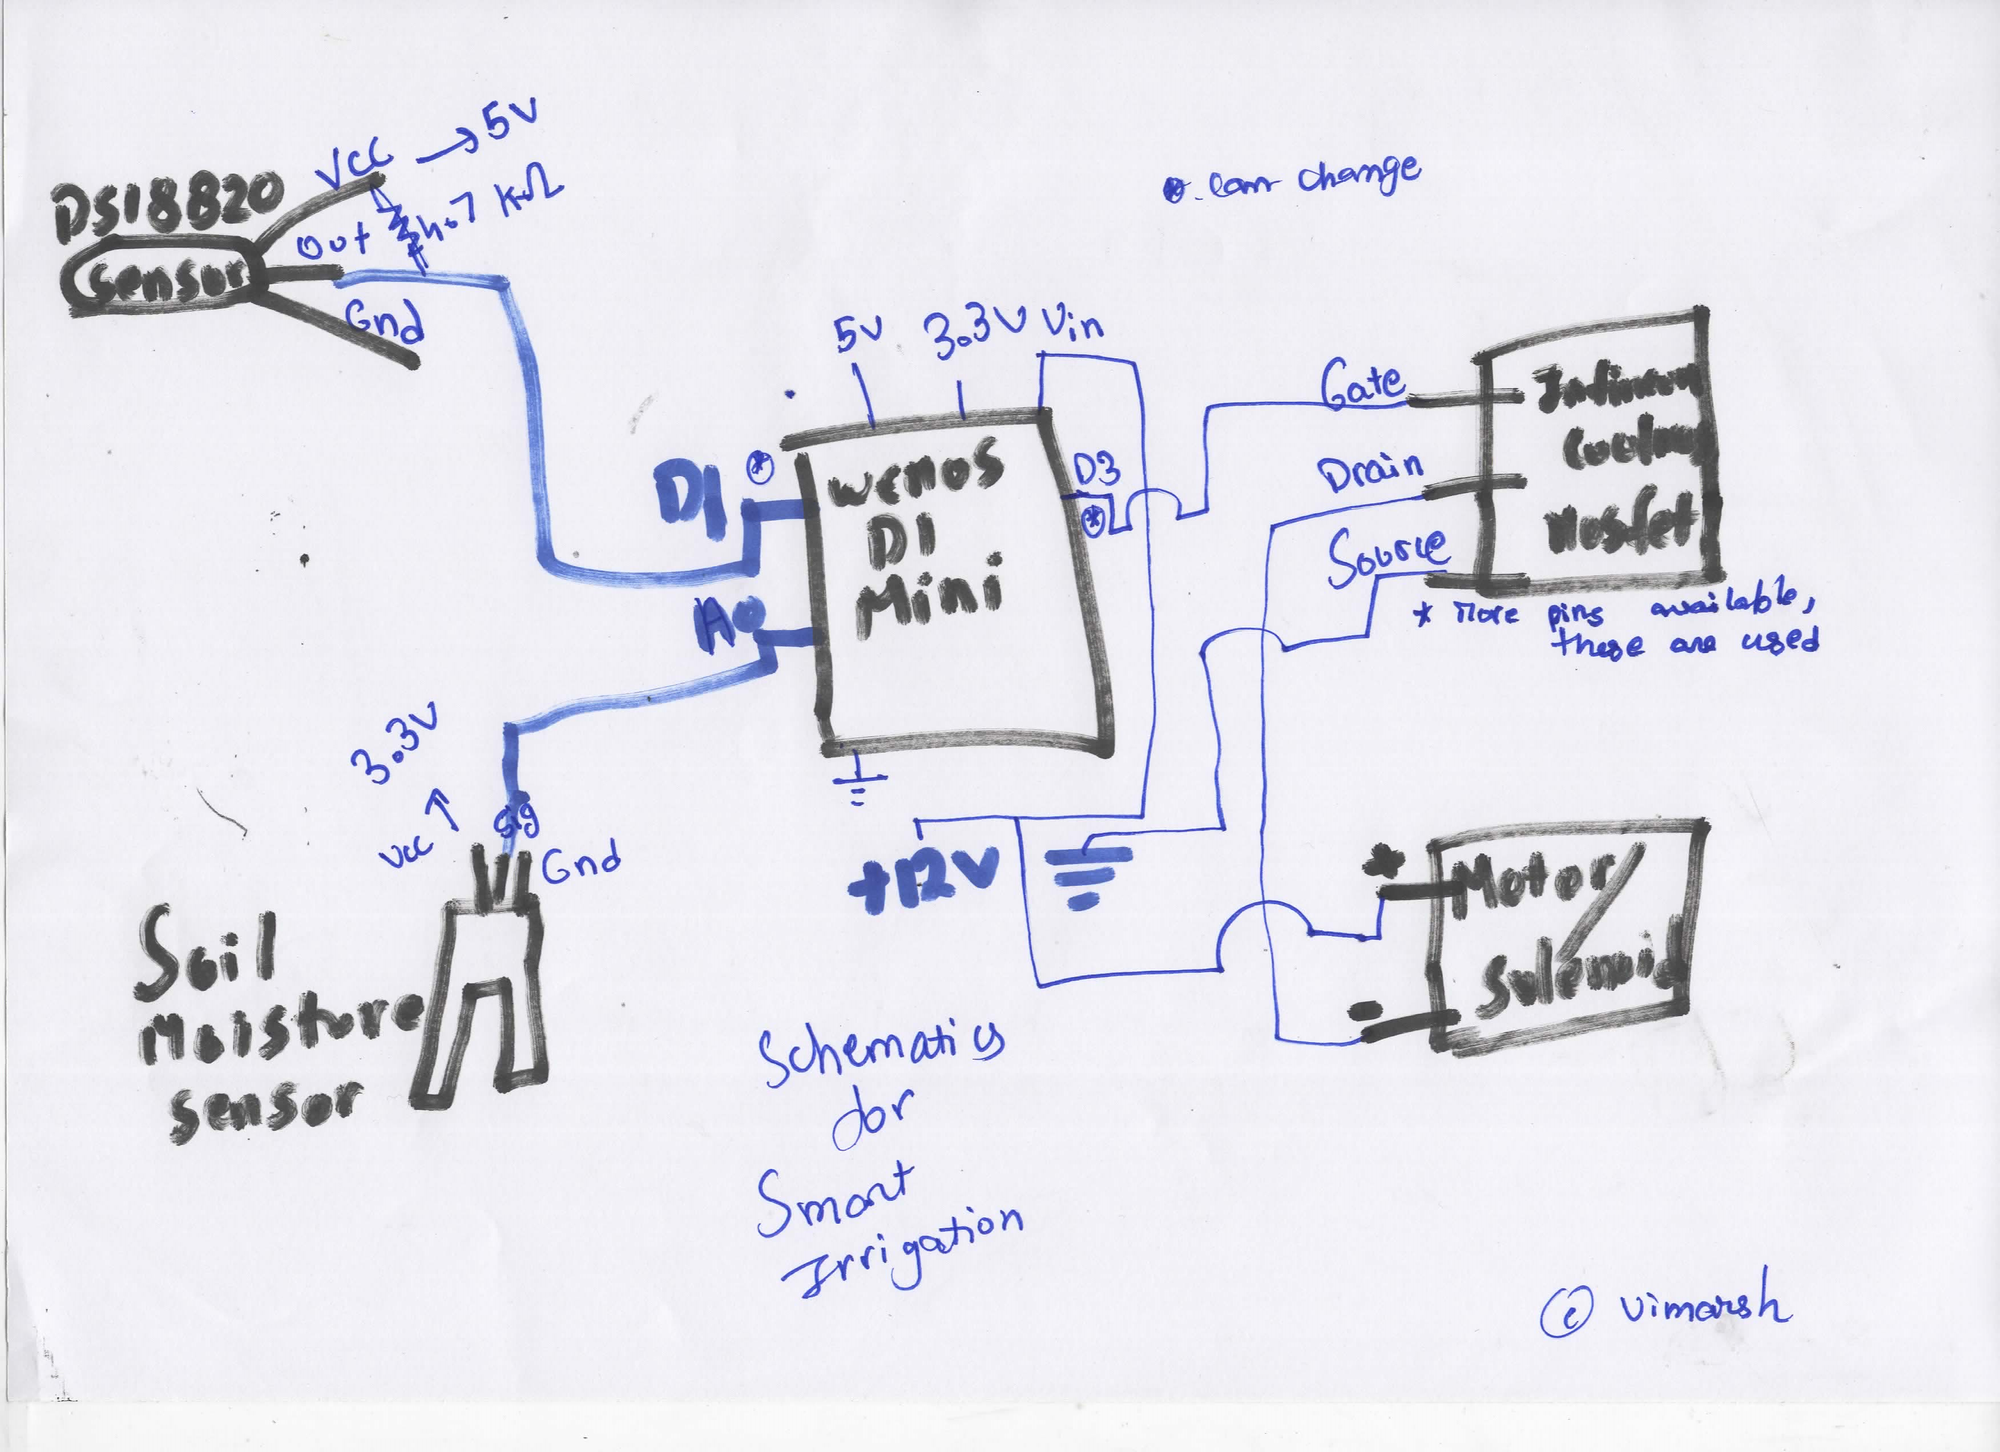 DS18B20
Sensor
VCC → 5V
4.7 KΩ
Out
Gnd
⊛. can change
5V
3.3V
Vin
D1 ⊛
A0
Wemos
D1
Mini
D3
⊛
Gate
Drain
Source
Mosfet
* More pins available,
these are used
3.3V
Vcc
Sig
Gnd
Soil
Moisture
Sensor
+12V
+
-
Motor/
Solenoid
Schematics
for
Smart
Irrigation
© Vimarsh